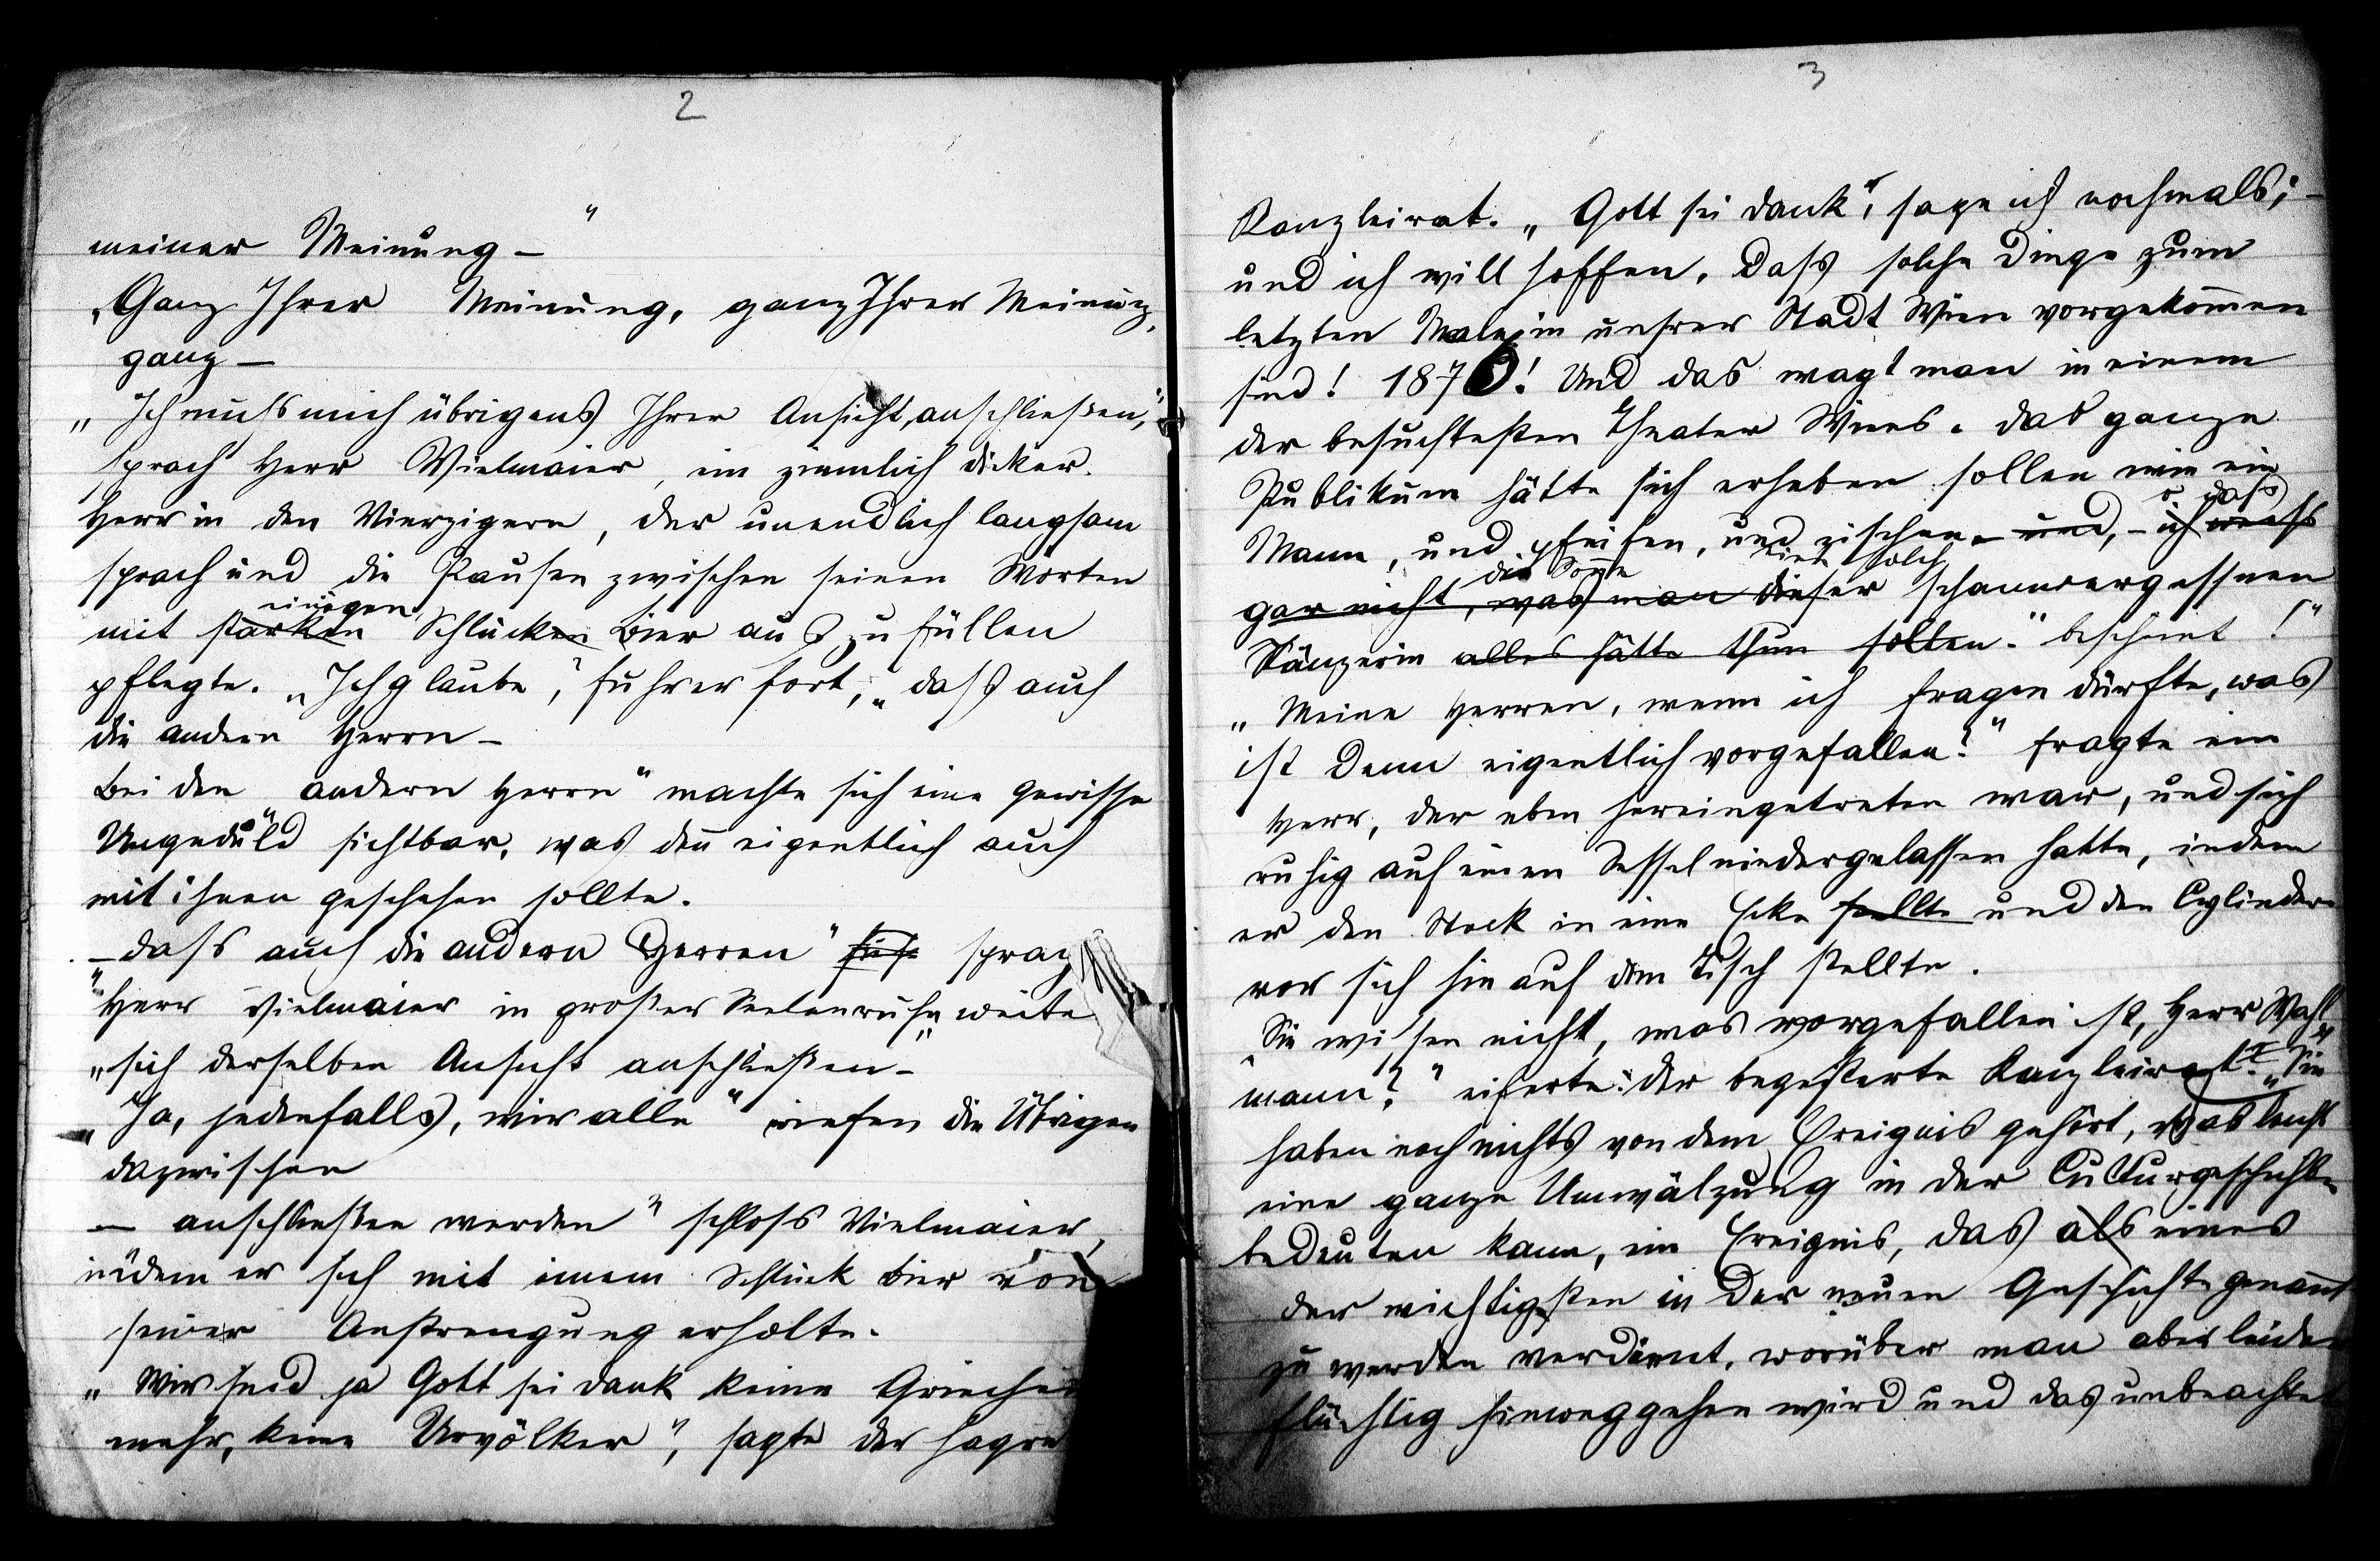 2
meiner Meinung –"
„Ganz Ihrer Meinung, ganz Ihrer Meinung,
ganz –
„Ich muss mich übrigens Ihrer Ansicht anschließen,"
sprach Herr Vielmaier, ein ziemlich dicker
Herr in den Vierzigern, der unendlich langsam
sprach und die Pausen zwischen seinen Worten
einigen
mit starken Schlucken Bier auszufüllen
pflegte. „Ich glaube", fuhr er fort, „dass auch
die andern Herrn –
Bei den „andern Herrn" machte sich eine gewisse
Ungeduld sichtbar, was deñ eigentlich auch
mit ihnen geschehen sollte.
„– dass auch die andern Herren" sprach
Herr Vielmaier in großer Seelenruhe weiter
„sich derselben Ansicht anschließen –"
„Ja, jedenfalls, wir alle" riefen die Übrigen
dazwischen
– anschließen werden" schloss Vielmaier,
indem er sich mit einem Schluck Bier von
seiner Anstrengung erholte.
„Wir sind ja Gott sei dank keine Griechen
mehr, keine Urvölker", sagte der hagre
3
Kanzleirat. „Gott sei dank", sage ich nochmals; –
und ich will hoffen, dass solche Dinge zum
letzten Male in unsrer Stadt Wien vorgekom̄en
sind! 1876! Und das wagt man in einem
der besuchtesten Theater Wiens. Das ganze
Publikum hätte sich erheben sollen wie ein
o dass
Mann, und pfeifen, und zischen – und, – ich weiß
die Sonne eine solch
gar nicht, was man dieser schamvergessnen
Tänzerin alles hätte thun sollen." bescheint!"
„Meine Herren, wenn ich fragen dürfte, was
ist denn eigentlich vorgefallen?" fragte ein
Herr, der eben hereingetreten war, und sich
ruhig auf einen Sessel niedergelassen hatte, indem
er den Stock in eine Ecke stellte und den Cylinder
vor sich hin auf den Tisch stellte.
„Sie wissen nicht, was vorgefallen ist, Herr Wahl-
mann?" eiferte der begeisterte Kanzleirat. „Sie
haben noch nichts von dem Ereignis gehört, das leicht
eine ganze Umwälzung in der Culturgeschichte
bedeuten kann, ein Ereignis, das als eines
der wichtigsten in der neuen Geschichte genan̄t
zu werden verdient, worüber man aber leider
flüchtig hinweggehen wird und das unbeachtet